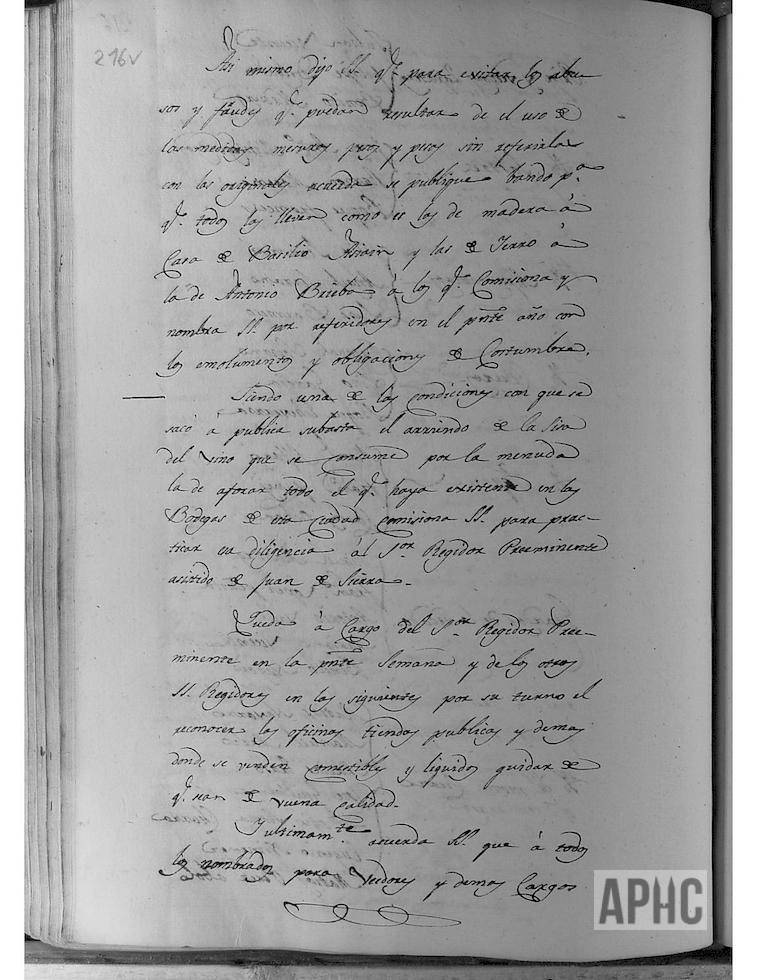 296v
Asi mismo dijo SS. q.e para evitar los abu
sos y fraudes q.e puedan resultar de el uso de
las medidas mesuras pesos y pesas sin referirlas
con los originales acuerda se publique bando p.a
q.e todos las lleven como es las de madera á
Casa de Basilio Asiain y las de Ierro à
la de Antonio Brieba á los q.e Comisiona y
nombra SS. por referidores en el pnte año con
los emolumentos y obligaciones de Costumbre.
Siendo una de las condiciones con que se
sacó a publica subasta el arriendo de la Sisa
del vino que se consume por la menuda
la de aforar todo el q.e haya existente en las
Bodegas de esta Ciudad comisiona SS. para prac-
ticar esa diligencia àl S.or Regidor Preeminente
asistido de Juan de Sierra.
Queda à Cargo del S.or Regidor Pree-
minente en la pnte Semana y de los otros
SS. Regidores en las siguientes por su turno el
reconocer las oficinas tiendas publicas y demas
donde se venden comestibles y liquidos quidar de
q.e sean de vuena calidad.
Y ultimam.te acuerda SS. que à todos
los nombrados para Veedores y demas Cargos
APHC